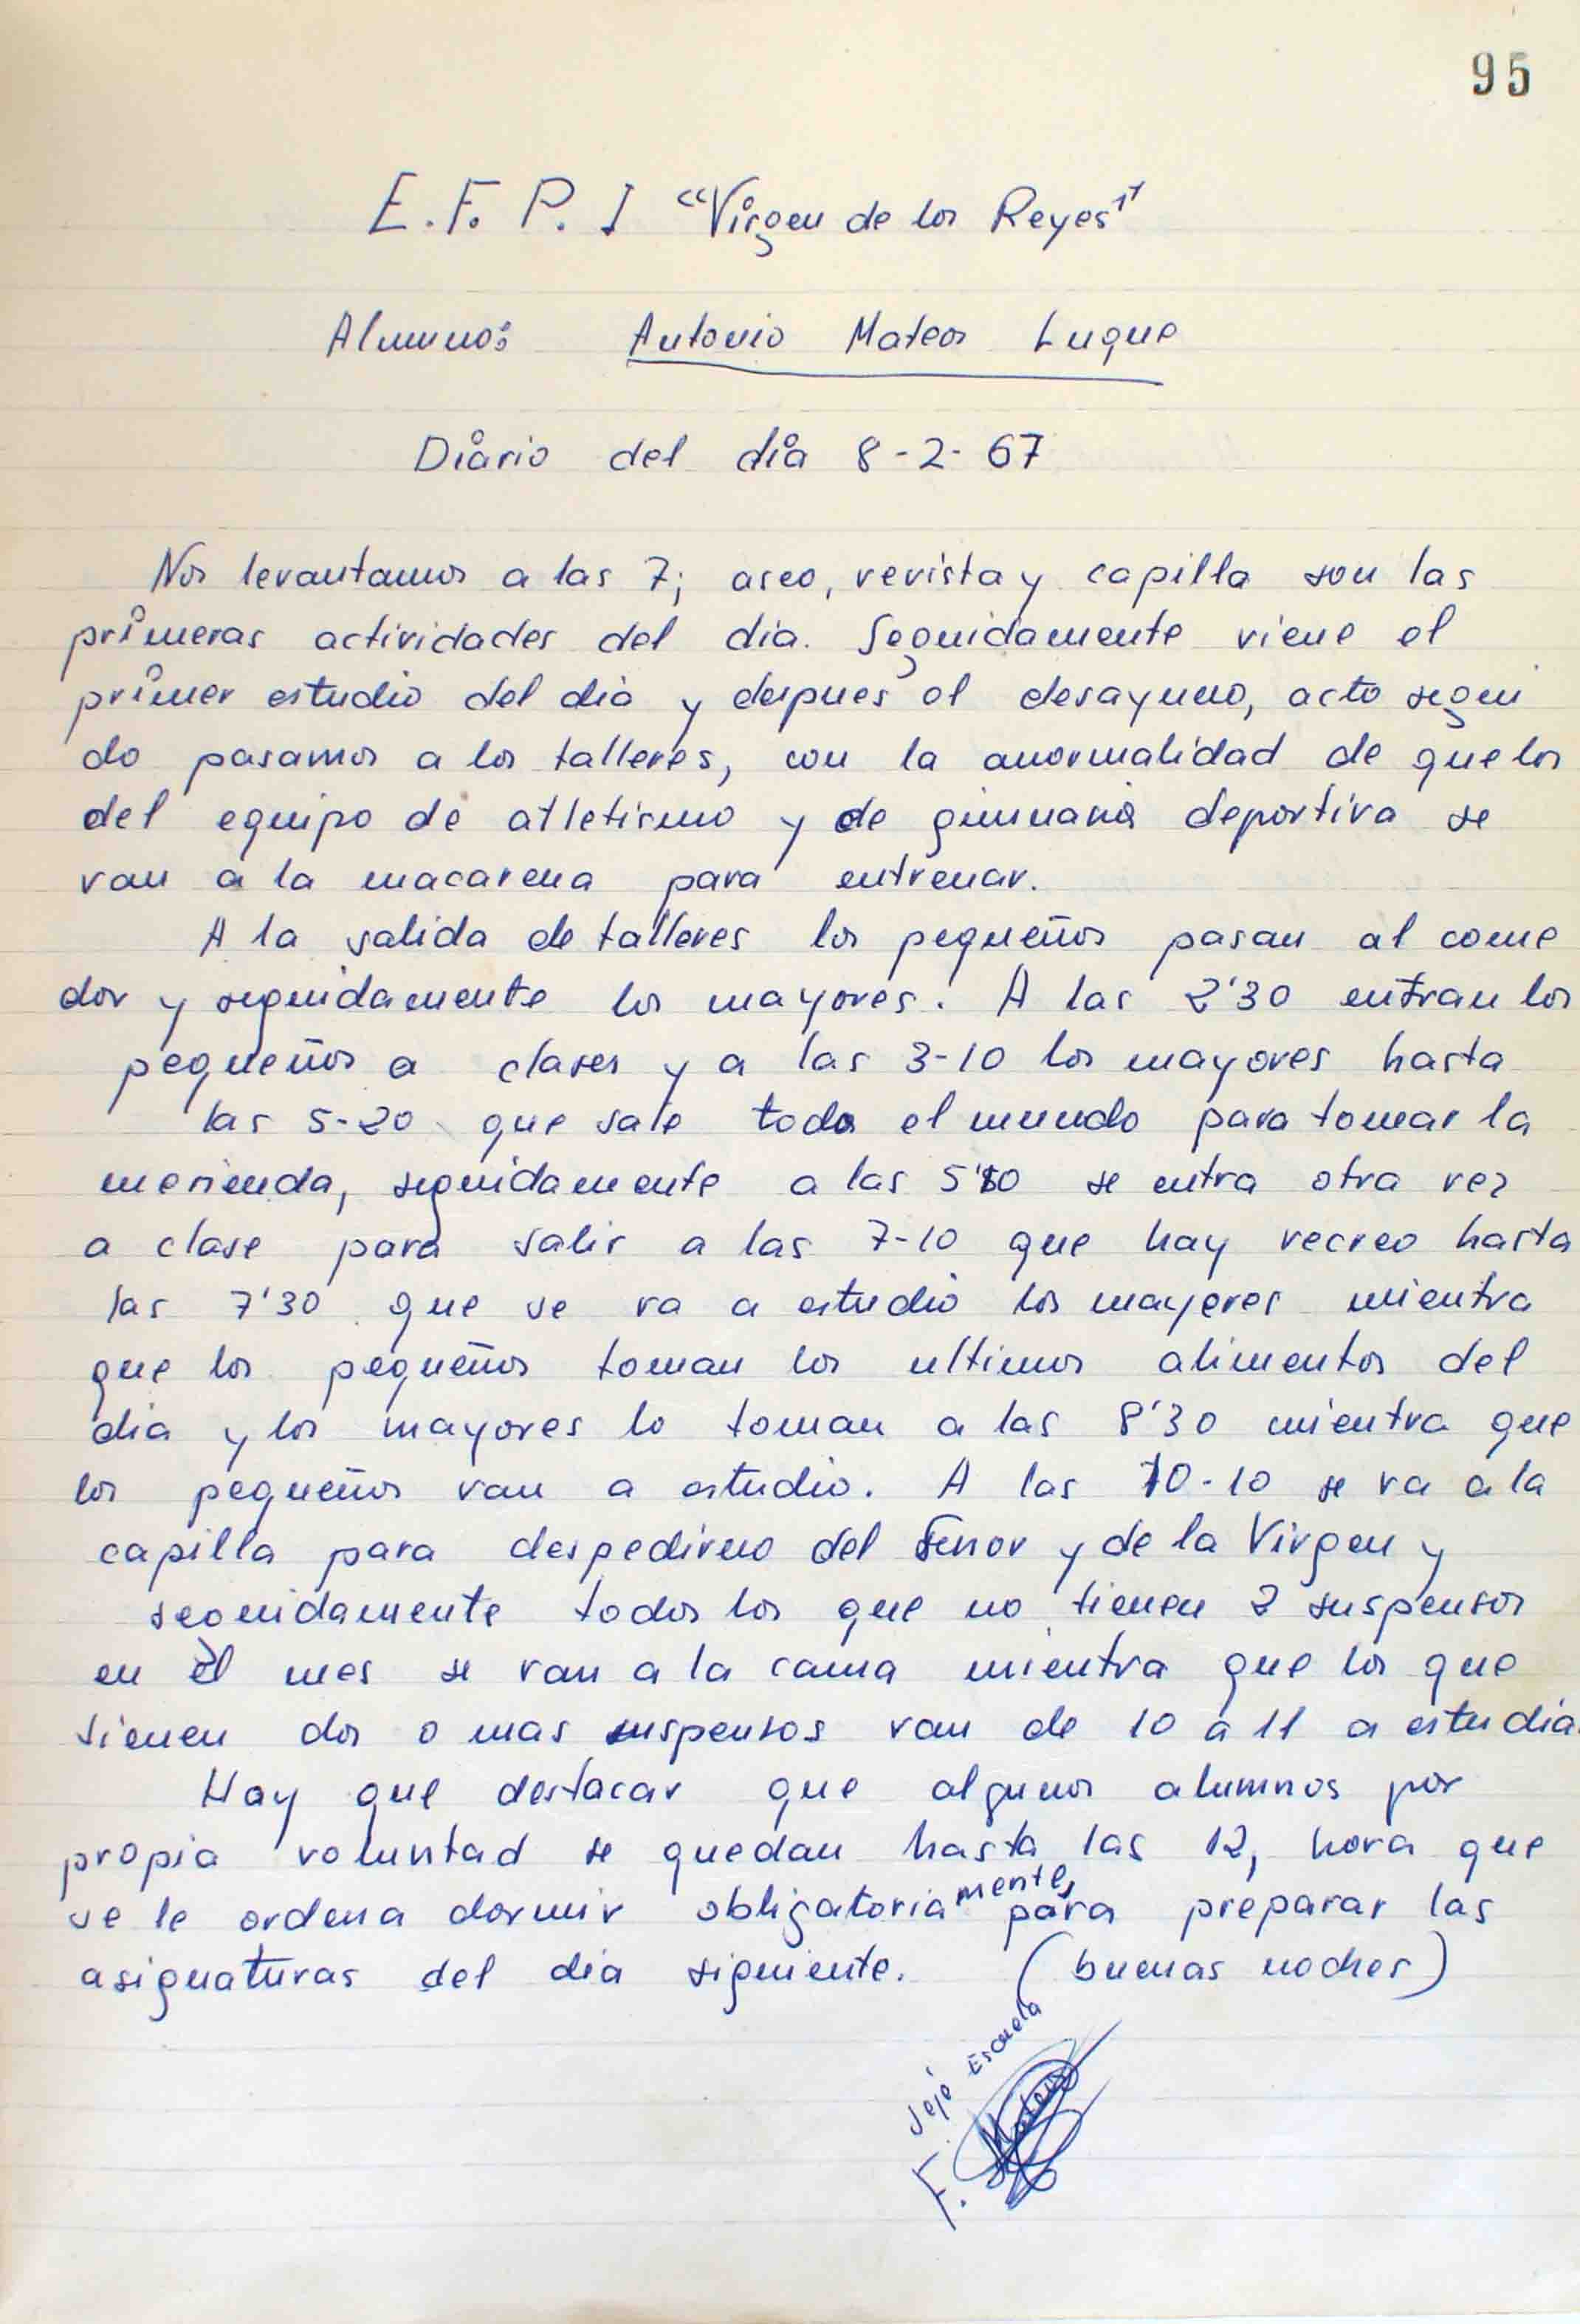 95
E.F. P. I "Virgen de los Reyes"
Alumno: Antonio Mateos Luque
Diario del dia 8-2-67
Nos levantamos a las 7; aseo, revista y capilla son las
primeras actividades del dia. Seguidamente viene el
primer estudio del dia y despues el desayuno, acto segui
do pasamos a los talleres, con la anormalidad de que los
del equipo de atletismo y de gimnasia deportiva se
van a la macarena para entrenar.
A la salida de talleres los pequeños pasan al come
dor y seguidamente los mayores. A las 2'30 entran los
pequeños a clases y a las 3-10 los mayores hasta
las 5-20 que sale todo el mundo para tomar la
merienda, seguidamente a las se entra otra vez
a clase para salir a las 7-10 que hay recreo hasta
las 7'30 que se va a estudio los mayores mientra
que los pequeños toman los ultimos alimentos del
dia y los mayores lo toman a las 8'30 mientra que
los pequeños van a estudio. A las 10-10 se va a la
capilla para despedirno del Señor y de la Virgen y
seguidamente todos los que no tienen 2 suspensos
en el mes se van a la cama mientra que los que
tienen dos o mas suspensos van de 10 a 11 a estudia
Hay que destacar que algunos alumnos por
propia voluntad se quedan hasta las 12, hora que
se le ordena dormir obligatoriamente, para preparar las
asignaturas del dia siguiente. (buenas noches)
Jefe Escuela
F. Mateos